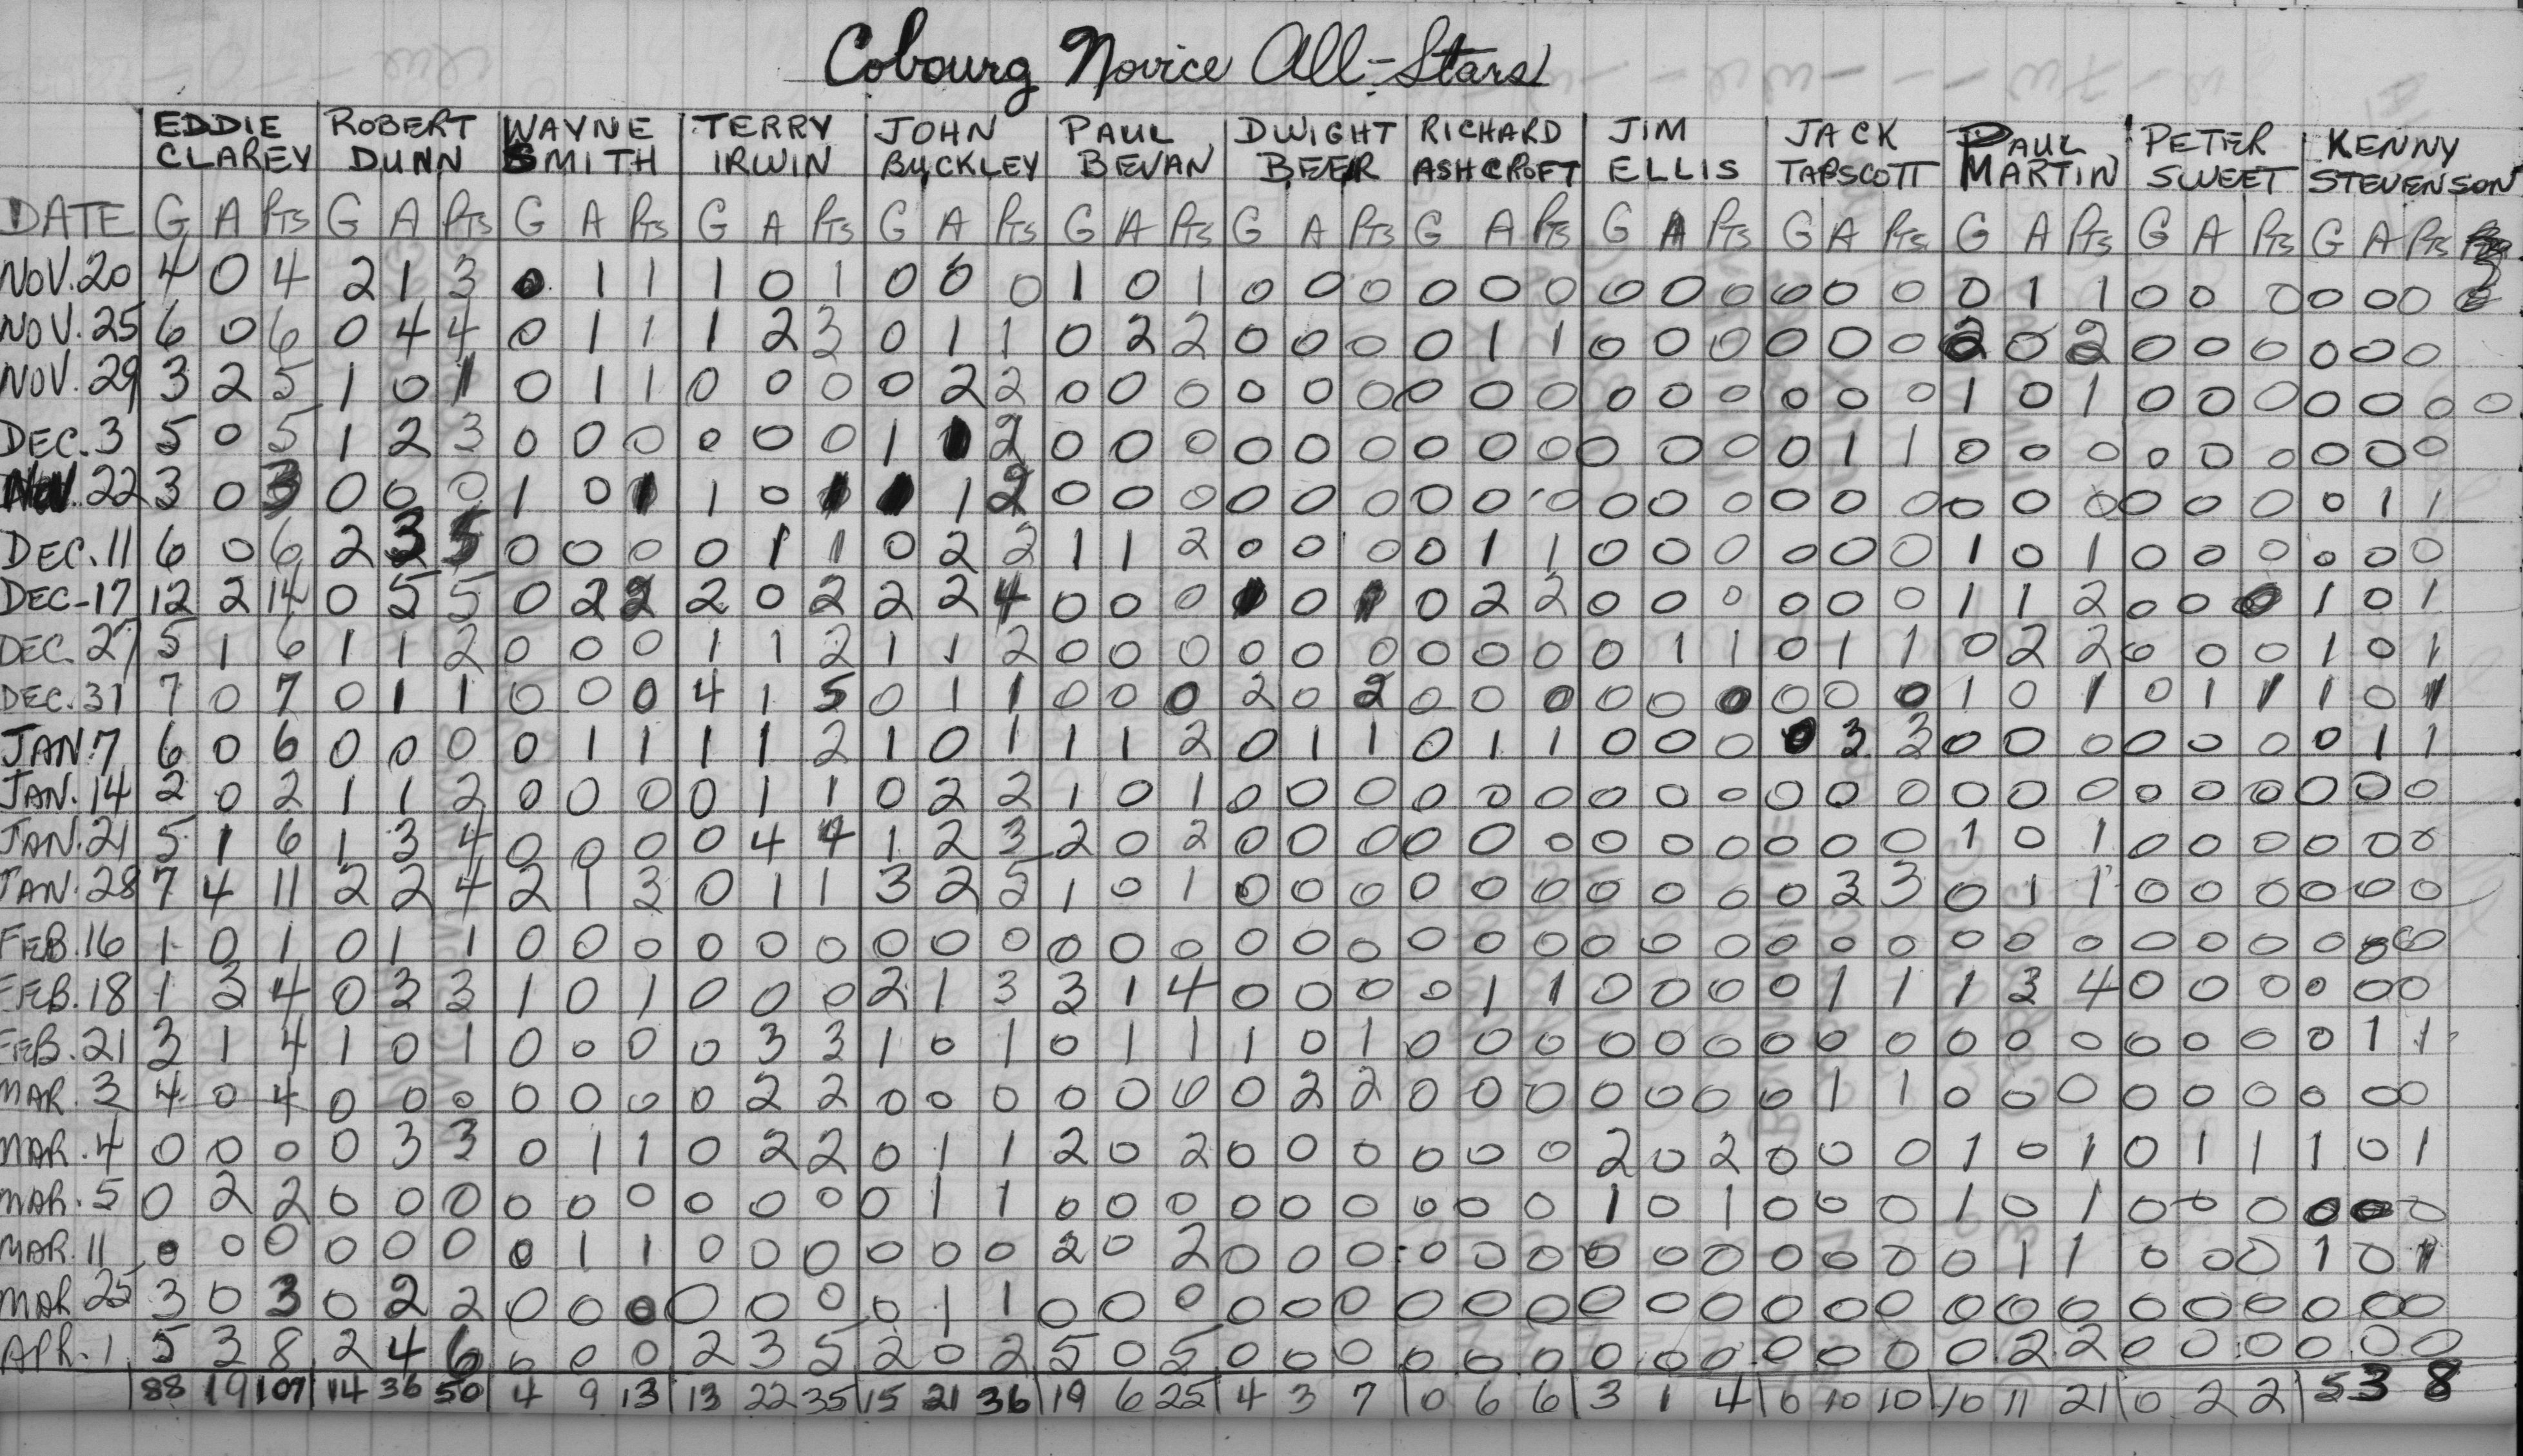 Cobourg Novice All-Stars
EDDIE ROBERT WAYNE TERRY JOHN PAUL DWIGHT RICHARD JIM JACK PAUL PETER KENNY
CLAREY DUNN SMITH IRWIN BUCKLEY BEVAN BEER ASHCROFT ELLIS TAPSCOTT MARTIN SWEET STEVENSON
DATE G A Pts G A Pts G A Pts G A Pts G A Pts G A Pts G A Pts G A Pts G A Pts G A Pts G A Pts G A Pts G A Pts
NOV. 20 4 0 4 2 1 3 0 1 1 1 0 1 0 0 0 1 0 1 0 0 0 0 0 0 0 0 0 0 0 0 0 1 1 0 0 0 0 0 0
NOV. 25 6 0 6 0 4 4 0 1 1 1 2 3 0 1 1 0 2 2 0 0 0 0 1 1 0 0 0 0 0 0 2 0 2 0 0 0 0 0 0
NOV. 29 3 2 5 1 0 1 0 1 1 0 0 0 0 2 2 0 0 0 0 0 0 0 0 0 0 0 0 0 0 0 1 0 1 0 0 0 0 0 0 0
DEC. 3 5 0 5 1 2 3 0 0 0 0 0 0 1 1 2 0 0 0 0 0 0 0 0 0 0 0 0 0 1 1 0 0 0 0 0 0 0 0 0
NOV. 22 3 0 3 0 0 0 1 0 1 1 0 1 1 1 2 0 0 0 0 0 0 0 0 0 0 0 0 0 0 0 0 0 0 0 0 0 0 1 1
DEC. 11 6 0 6 2 3 5 0 0 0 0 1 1 0 2 2 1 1 2 0 0 0 0 1 1 0 0 0 0 0 0 1 0 1 0 0 0 0 0 0
DEC-17 12 2 14 0 5 5 0 2 2 2 0 2 2 2 4 0 0 0 1 0 1 0 2 2 0 0 0 0 0 0 1 1 2 0 0 0 1 0 1
DEC. 27 5 1 6 1 1 2 0 0 0 1 1 2 1 1 2 0 0 0 0 0 0 0 0 0 0 1 1 0 1 1 0 2 2 0 0 0 1 0 1
DEC. 31 7 0 7 0 1 1 0 0 0 4 1 5 0 1 1 0 0 0 2 0 2 0 0 0 0 0 0 0 0 0 1 0 1 0 1 1 1 0 1
JAN. 7 6 0 6 0 0 0 0 1 1 1 1 2 1 0 1 1 1 2 0 1 1 0 1 1 0 0 0 0 3 3 0 0 0 0 0 0 0 1 1
JAN. 14 2 0 2 1 1 2 0 0 0 0 1 1 0 2 2 1 0 1 0 0 0 0 0 0 0 0 0 0 0 0 0 0 0 0 0 0 0 0 0
JAN. 21 5 1 6 1 3 4 0 0 0 0 4 4 1 2 3 2 0 2 0 0 0 0 0 0 0 0 0 0 0 0 1 0 1 0 0 0 0 0 0
JAN. 28 7 4 11 2 2 4 2 1 3 0 1 1 3 2 5 1 0 1 0 0 0 0 0 0 0 0 0 0 3 3 0 1 1 0 0 0 0 0 0
FEB. 16 1 0 1 0 1 1 0 0 0 0 0 0 0 0 0 0 0 0 0 0 0 0 0 0 0 0 0 0 0 0 0 0 0 0 0 0 0 0 0
FEB. 18 1 3 4 0 3 3 1 0 1 0 0 0 2 1 3 3 1 4 0 0 0 0 1 1 0 0 0 0 1 1 1 3 4 0 0 0 0 0 0
FEB. 21 3 1 4 1 0 1 0 0 0 0 3 3 1 0 1 0 1 1 1 0 1 0 0 0 0 0 0 0 0 0 0 0 0 0 0 0 0 1 1
MAR. 3 4 0 4 0 0 0 0 0 0 0 2 2 0 0 0 0 0 0 0 2 2 0 0 0 0 0 0 0 1 1 0 0 0 0 0 0 0 0 0
MAR. 4 0 0 0 0 3 3 0 1 1 0 2 2 0 1 1 2 0 2 0 0 0 0 0 0 2 0 2 0 0 0 1 0 1 0 1 1 1 0 1
MAR. 5 0 2 2 0 0 0 0 0 0 0 0 0 0 1 1 0 0 0 0 0 0 0 0 0 1 0 1 0 0 0 1 0 1 0 0 0 0 0 0
MAR. 11 0 0 0 0 0 0 0 1 1 0 0 0 0 0 0 2 0 2 0 0 0 0 0 0 0 0 0 0 0 0 0 1 1 0 0 0 1 0 1
MAR 25 3 0 3 0 2 2 0 0 0 0 0 0 0 1 1 0 0 0 0 0 0 0 0 0 0 0 0 0 0 0 0 0 0 0 0 0 0 0 0
APR. 1 5 3 8 2 4 6 0 0 0 2 3 5 2 0 2 5 0 5 0 0 0 0 0 0 0 0 0 0 0 0 0 2 2 0 0 0 0 0 0
88 19 107 14 36 50 4 9 13 13 22 35 15 21 36 19 6 25 4 3 7 0 6 6 3 1 4 0 10 10 10 11 21 0 2 2 5 3 8